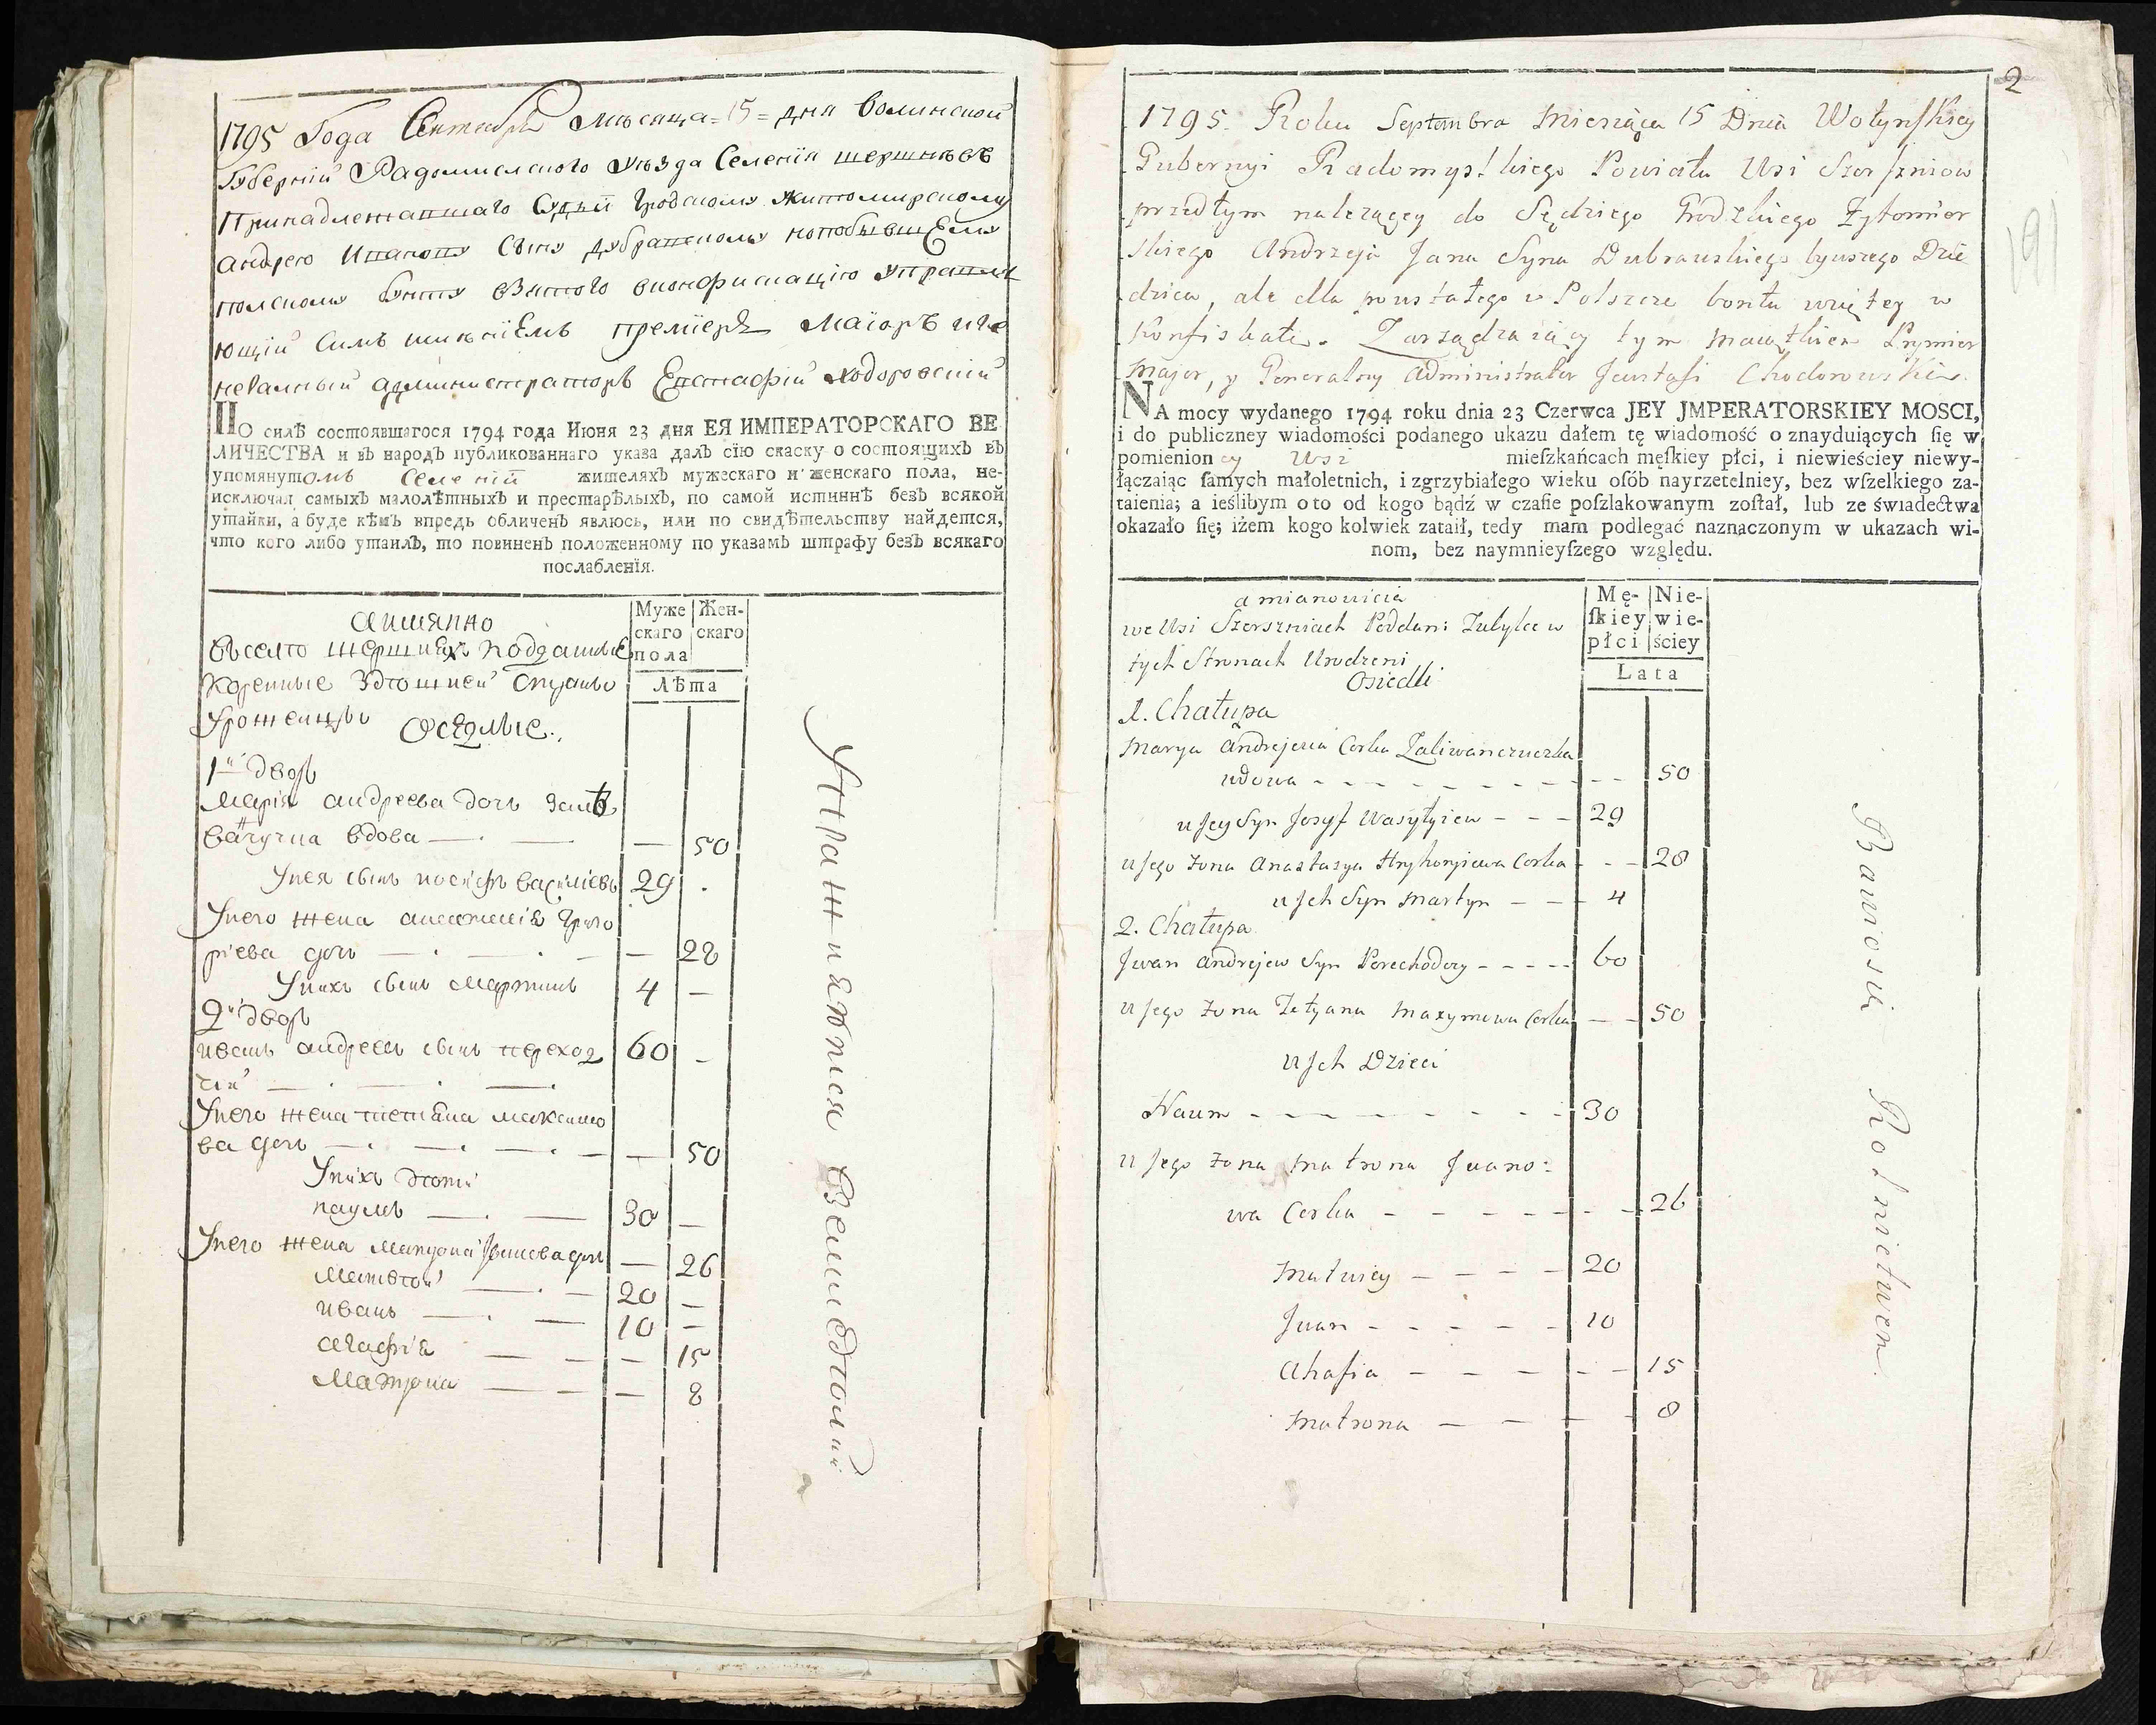 1795 Года Сентября Мѣсяца = 15 = дня Волинской
Губерніи Радомислского Уѣзда Селенія шершнѣвъ
Принадлежавшаго Судьи Гродскому Житомирскому
андрею Иванову Сыну дубравскому
польскому бунту взятого вконфискацію управля
ющій Симъ имѣніЕмъ премиеръ Маіоръ иге
неральный администраторъ Евстафій ходоровскій
ПО силѣ состоявшагося 1794 года Июня 23 дня ЕЯ ИМПЕРАТОРСКАГО ВЕ
ЛИЧЕСТВА и въ народъ публикованнаго указа далъ сїю скаску о состоящихъ въ
упомянутомъ Селеніи жителяхъ мужескаго и женскаго пола, не-
исключая самыхъ малолѣтныхъ и престарѣлыхъ, по самой истиннѣ безъ всякой
утайки, а буде кѣмъ впредь обличенъ явлюсь, или по свидѣтельству найдется,
что кого либо утаилъ, то повиненъ положенному по указамъ штрафу безъ всякаго
послабленїя.
аимянно
Всело шершняхъ подданные
Коренные Здешней
Уроженцы Осѣдлые.
Муже
скаго
пола
Жен-
скаго
Лѣта
1й дворъ
Марія андреева дочь Зали
ванчучка вдова — — 50
Унея сынъ иосифъ василіевъ 29 .
Унего жена анастасія Григо
ріева дочь — — 28
Унихъ сынъ Мартинъ 4 —
2й дворъ
иванъ андреевъ сынъ переход 60 —
чій
Унего жена тетіяна максимо
ва дочь — — 50
Унихъ дѣти
наумъ — 30 —
Унего жена Матрона Иванова дочь — 26
Матвѣй — 20 —
иванъ — 10 —
агафія — — 15
Матрона — — 8
Упражняются Земледѣліи
2
191
1795. Roku Septembra Miesiąca 15 Dnia Wołynſkiey
Gubernyi Radomyslskiego Powiatu Wsi Szerſzniow
przedtym należącey do Sędziego Grodzkiego Zytomier
skiego Andrzeja Jana Syna Dubrawskiego bywszego Dzie
dzica, ale dla powstałego w Polszcze bontu wziętey w
Konfiskatę. Zarządzaiący tym Maiątkiem Prymier
Major, y Generalny Administrator Jewstafi Chodorowski.
NA mocy wydanego 1794 roku dnia 23 Czerwca JEY JMPERATORSKIEY MOSCI,
i do publiczney wiadomości podanego ukazu dałem tę wiadomość o znayduiących ſię w
pomienioney Wsi mieſzkańcach męſkiey płci, i niewieściey niewy-
łączaiąc ſamych małoletnich, i zgrzybiałego wieku oſób nayrzetelniey, bez wſzelkiego za-
taienia; a ieślibym oto od kogo bądź w czaſie poſzlakowanym zoſtał, lub ze świadectwa
okazało ſię; iżem kogo kolwiek zataił, tedy mam podlegać naznaczonym w ukazach wi-
nom, bez naymnieyſzego względu.
a mianowicie
we Wsi Szerszniach Poddani Tubylce w
tych Stronach Urodzeni
Osiedli
Mę-
ſkiey
płci
Nie-
wie-
ściey
Lata
1. Chałupa
Marya Andrejewa Corka Zaliwanczuczka
wdowa - - - 50
u Jey Syn Jozyf Wasylyiew - - - 29
u Jego Zona Anastasya Hryhoryiewa Corka - - 28
u Jch Syn Martyn - - 4
2. Chałupa
Jwan Andrejew Syn Perechodczy - - - - 60
u Jego Zona Tetyana Maxymowa Corka - - 50
u Jch Dzieci
Naum - - - 30
u Jego Zona Matrona Jwano:
wa Corka - - - 26
Matwiey - - - 20
Jwan - - - 10
Ahafia - - - 15
Matrona - - - 8
Bawiosię Rolnictwem.